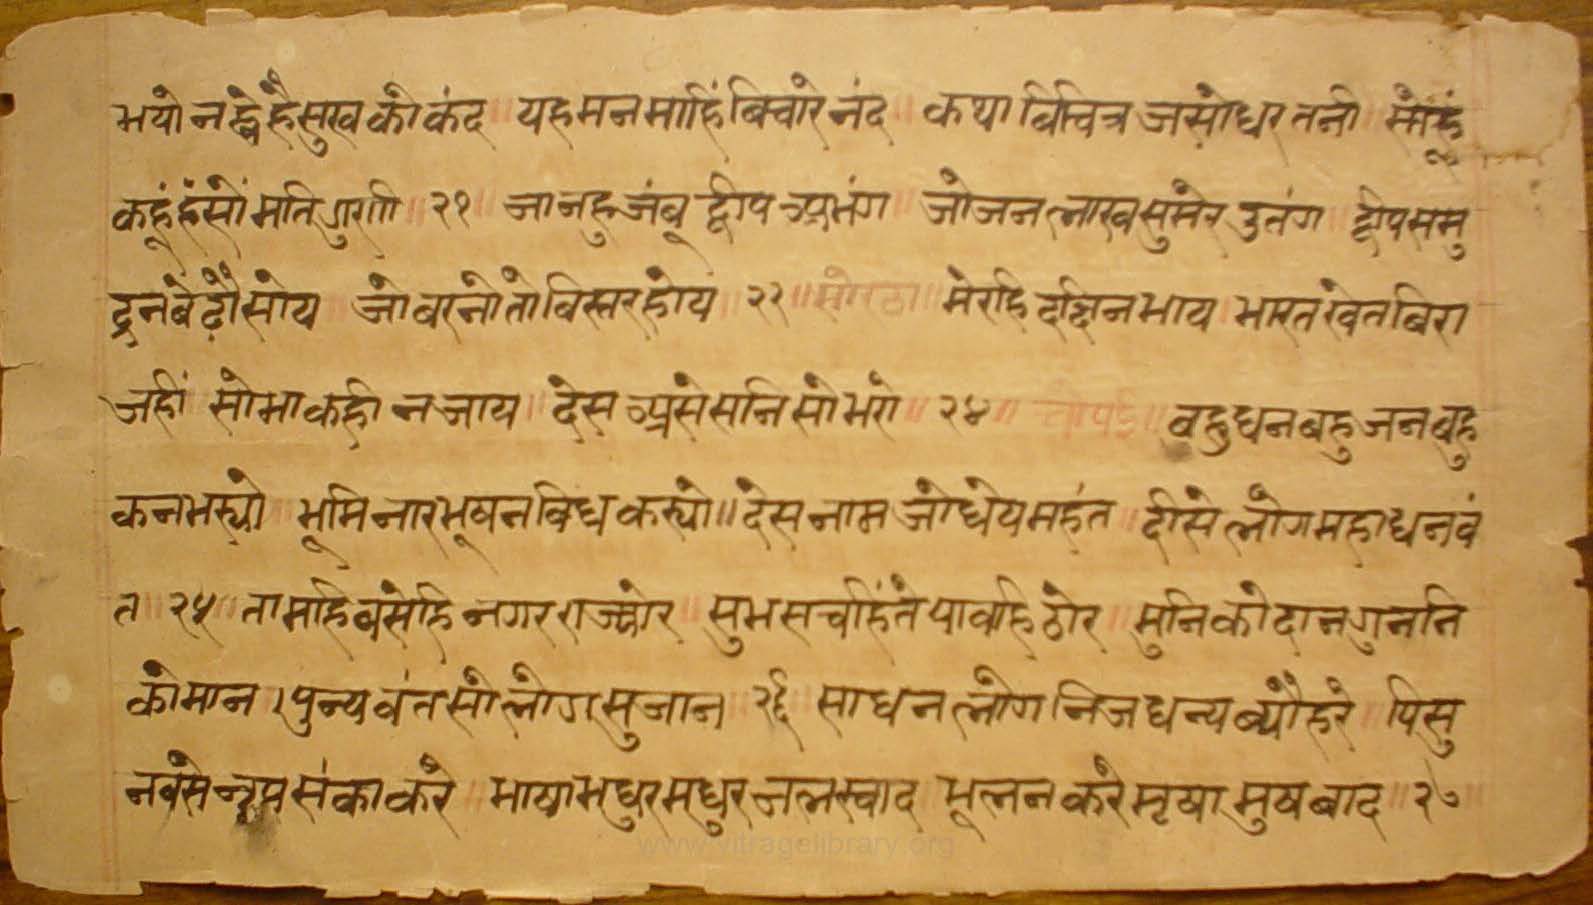 भयो न ह्वैहै सुख को कंद ॥ यह मन माहिं बिचारै नंद ॥ कथा विचित्र जसोधर तनी
कहूं हंसौं मति गुरगणी ॥ २१ ॥ जानहु जंबू द्वीप अभंग ॥ जोजन लाख सुमेर उतंग ॥ द्वीप समु
द्रन बेढ़ौ सोय ॥ जो बरनो तो विस्तर होय ॥ २२ ॥ सोरठा ॥ मेरहि दछिन भाय ॥ भारत खेत बिरा
जहीं ॥ सोभा कही न जाय ॥ देस असेसनि सो भरो ॥ २४ ॥ चौपई ॥ बहु धन बहु जन बहु
कन भस्यो ॥ भूमि नार भूषन बिध कस्यो ॥ देस नाम जोधेय महंत ॥ दीसे लोग महा धनवं
त ॥ २५ ॥ ता माहि बसेहि नगर राज्यौर ॥ सुभ सचहिं ते पावहि ठौर ॥ मुनि को दान गुननि
को मान । पुन्यवंत सो लोग सुजान ॥ २६ ॥ साधन लोग निज धन्य ब्यौहरै ॥ पिसु
न बसे नृप संका करै ॥ माया मधुर मधुर जल स्वाद ॥ भूल न करै मृषा मुष बाद ॥ २७ ॥
www.vitragelibrary.org